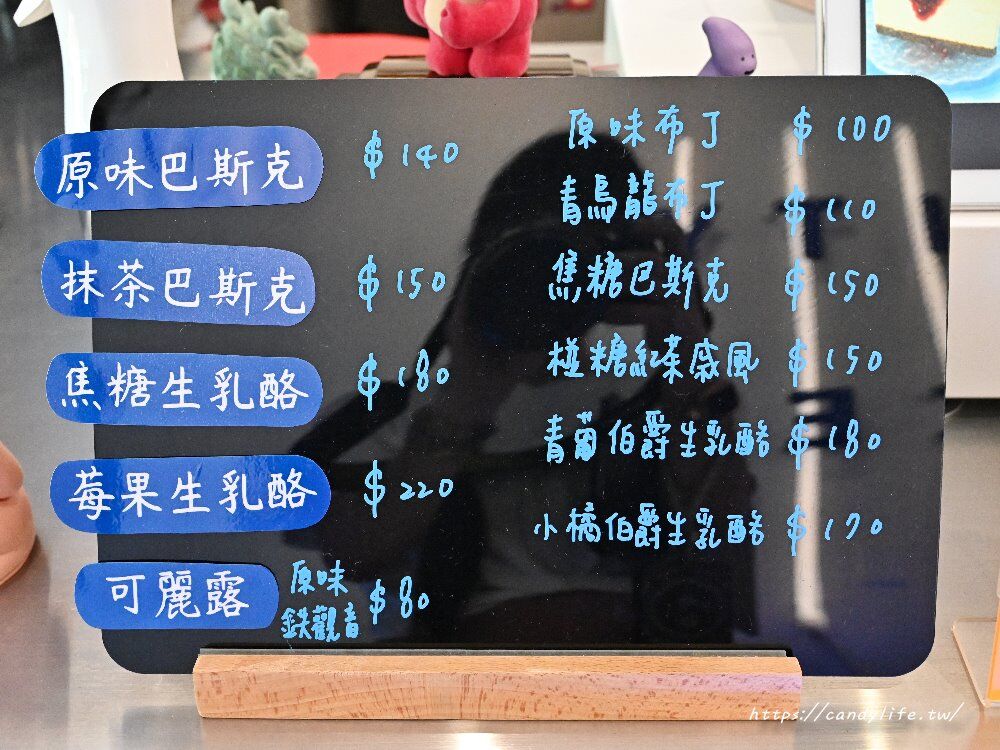 原味巴斯克 $140
抹茶巴斯克 $150
焦糖生乳酪 $180
莓果生乳酪 $220
可麗露 原味 $80
鉄觀音
原味布丁 $100
青烏龍布丁 $110
焦糖巴斯克 $150
椪糖紅茶戚風 $150
青葡伯爵生乳酪 $180
小橘伯爵生乳酪 $170
https://candylife.tw/